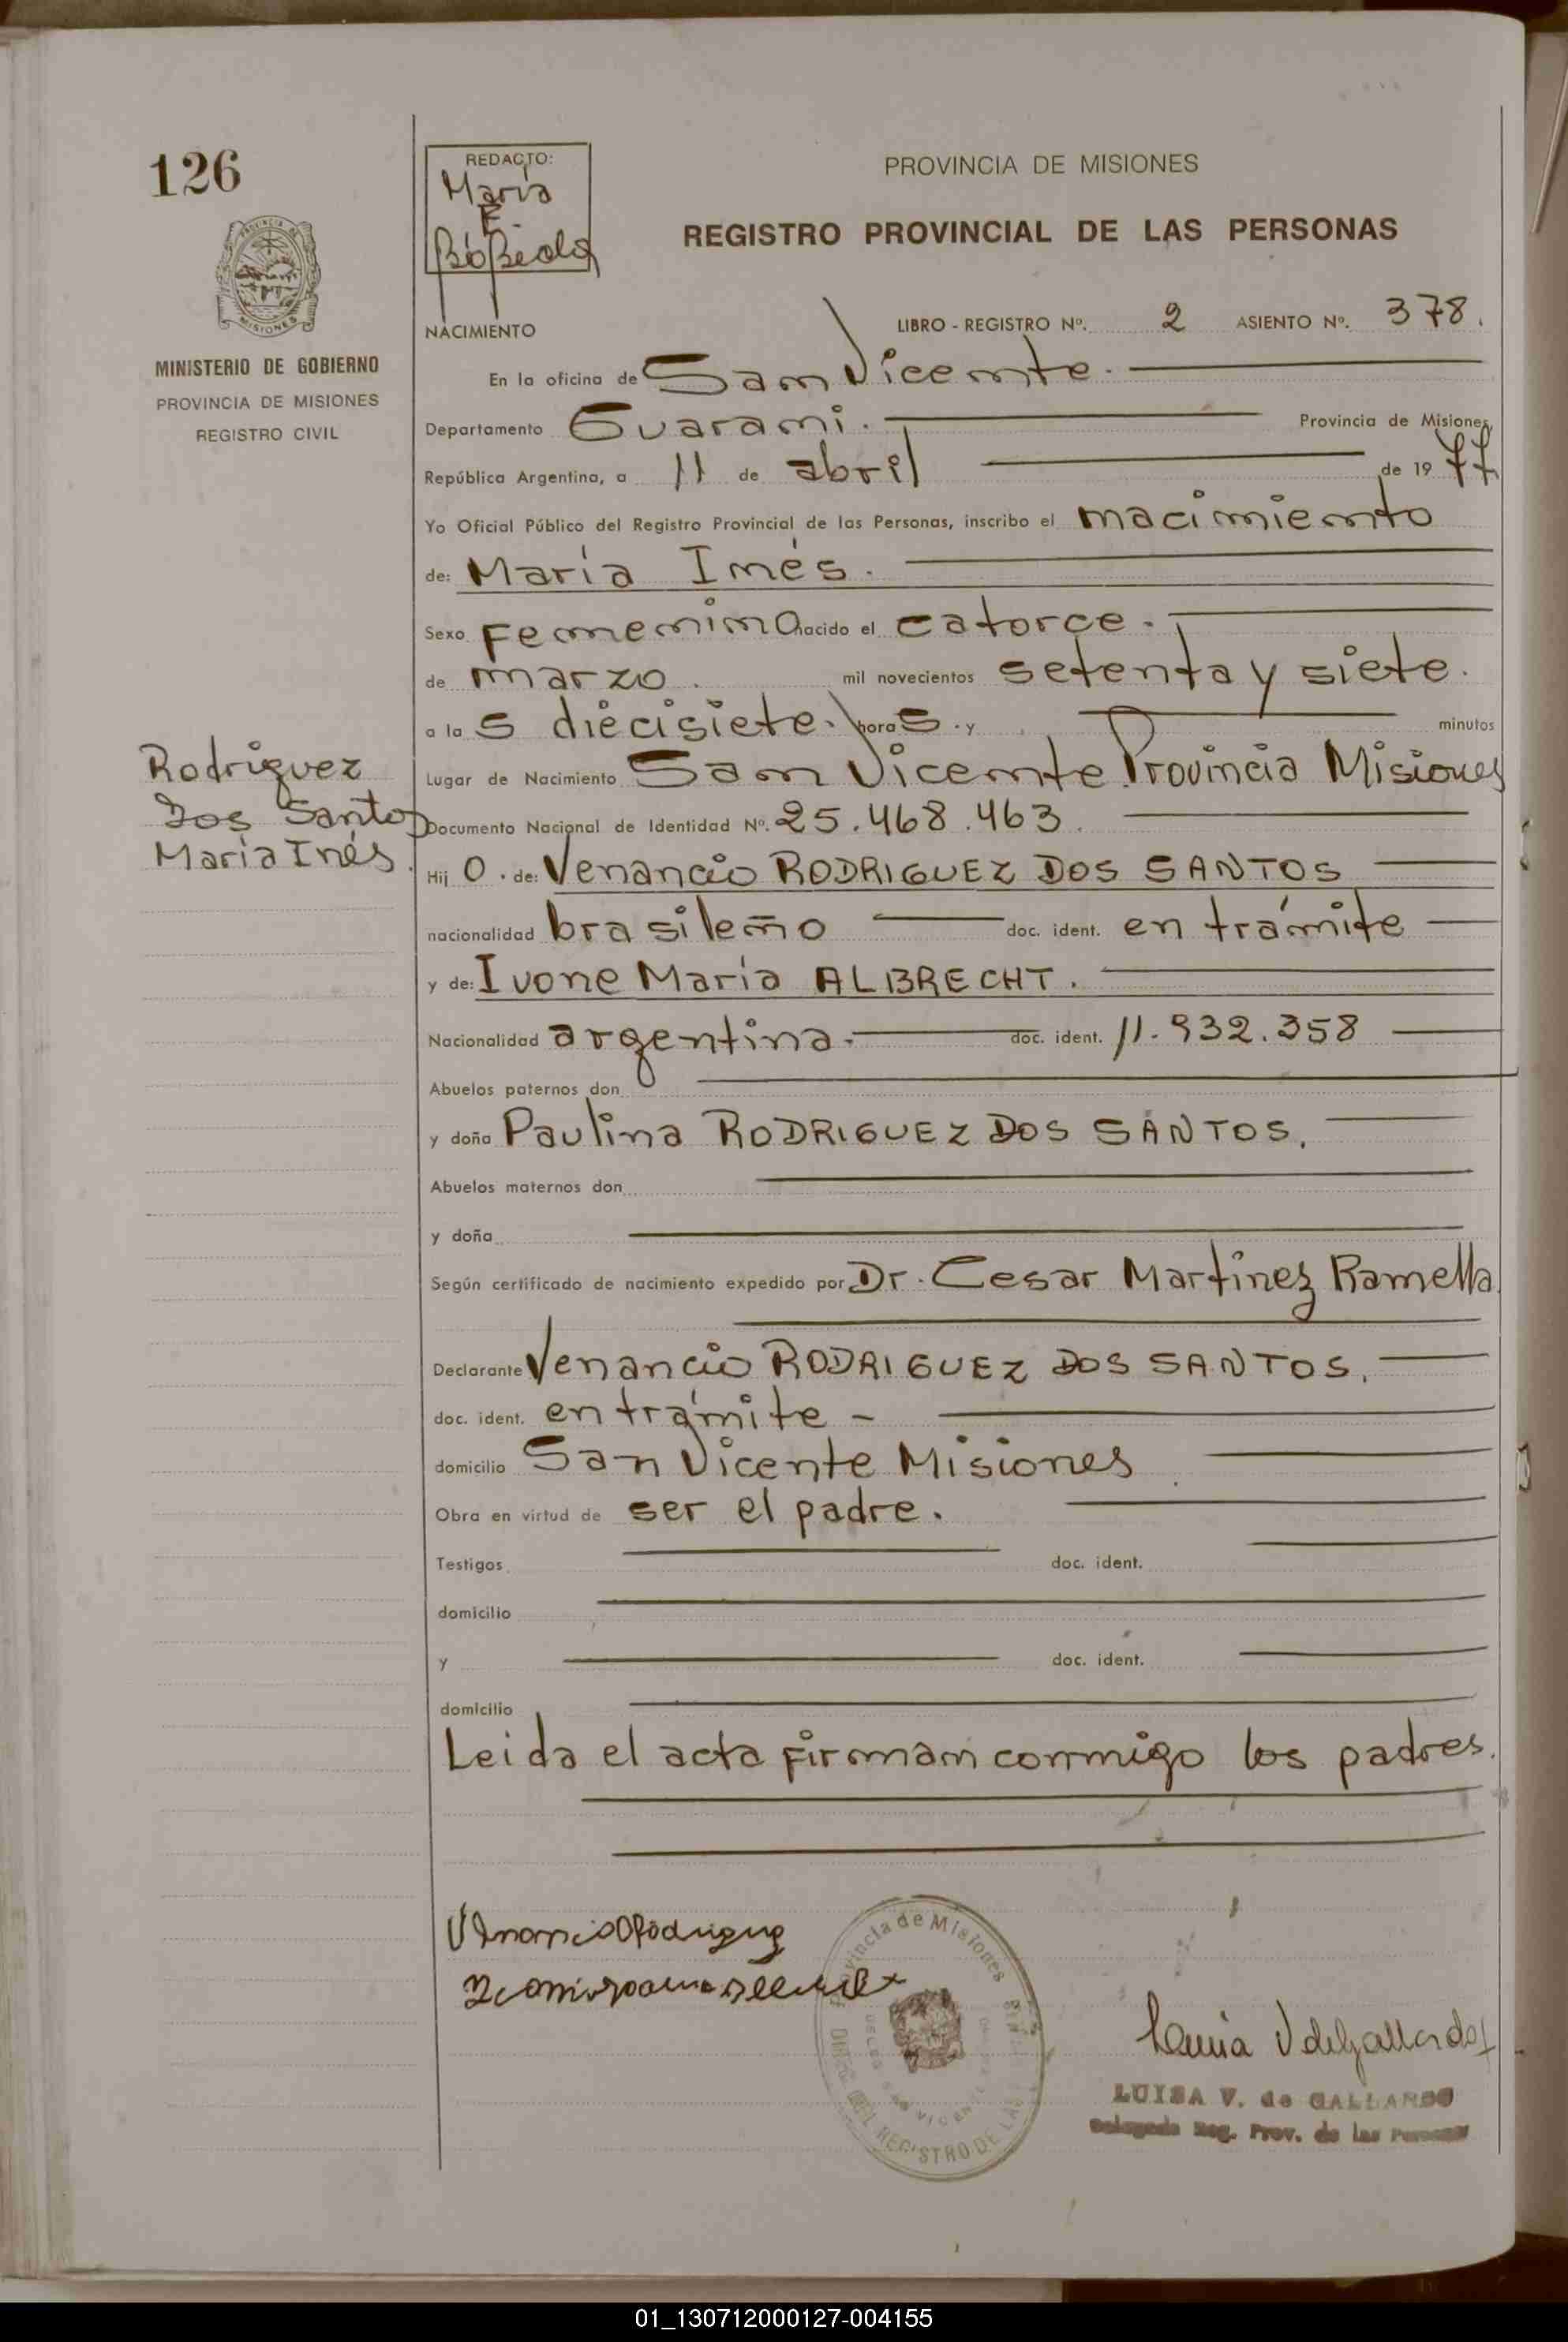 126
REDACTO:
María
PROVINCIA DE MISIONES
REGISTRO PROVINCIAL DE LAS PERSONAS
PROVINCIA DE
MISIONES
MINISTERIO DE GOBIERNO
PROVINCIA DE MISIONES
REGISTRO CIVIL
NACIMIENTO LIBRO - REGISTRO Nº. 2 ASIENTO Nº. 378.
En la oficina de San Vicente.
Departamento Guaraní. Provincia de Misiones,
República Argentina, a 11 de abril de 1977
Yo Oficial Público del Registro Provincial de las Personas, inscribo el nacimiento
de: María Inés.
Sexo femenino nacido el catorce.
de marzo. mil novecientos setenta y siete.
a la s diecisiete. hora s. y minutos
Lugar de Nacimiento San Vicente Provincia Misiones
Rodriguez
Dos Santos
María Inés.
Documento Nacional de Identidad Nº. 25.468.463.
Hij O. de: Venancio RODRIGUEZ DOS SANTOS
nacionalidad brasileño doc. ident. en trámite
y de: Ivone María ALBRECHT.
Nacionalidad argentina. doc. ident. 11.932.358
Abuelos paternos don
y doña Paulina RODRIGUEZ DOS SANTOS.
Abuelos maternos don
y doña
Según certificado de nacimiento expedido por Dr. Cesar Martinez Ramella
Declarante Venancio RODRIGUEZ DOS SANTOS.
doc. ident. en trámite -
domicilio San Vicente Misiones
Obra en virtud de ser el padre.
Testigos doc. ident.
domicilio
y doc. ident.
domicilio
Leida el acta firman conmigo los padres.
Provincia de Misiones
DIRC. DEL REGISTRO DE LAS
LUISA V. de GALLARDO
Delegada Reg. Prov. de las Personas
01_130712000127-004155